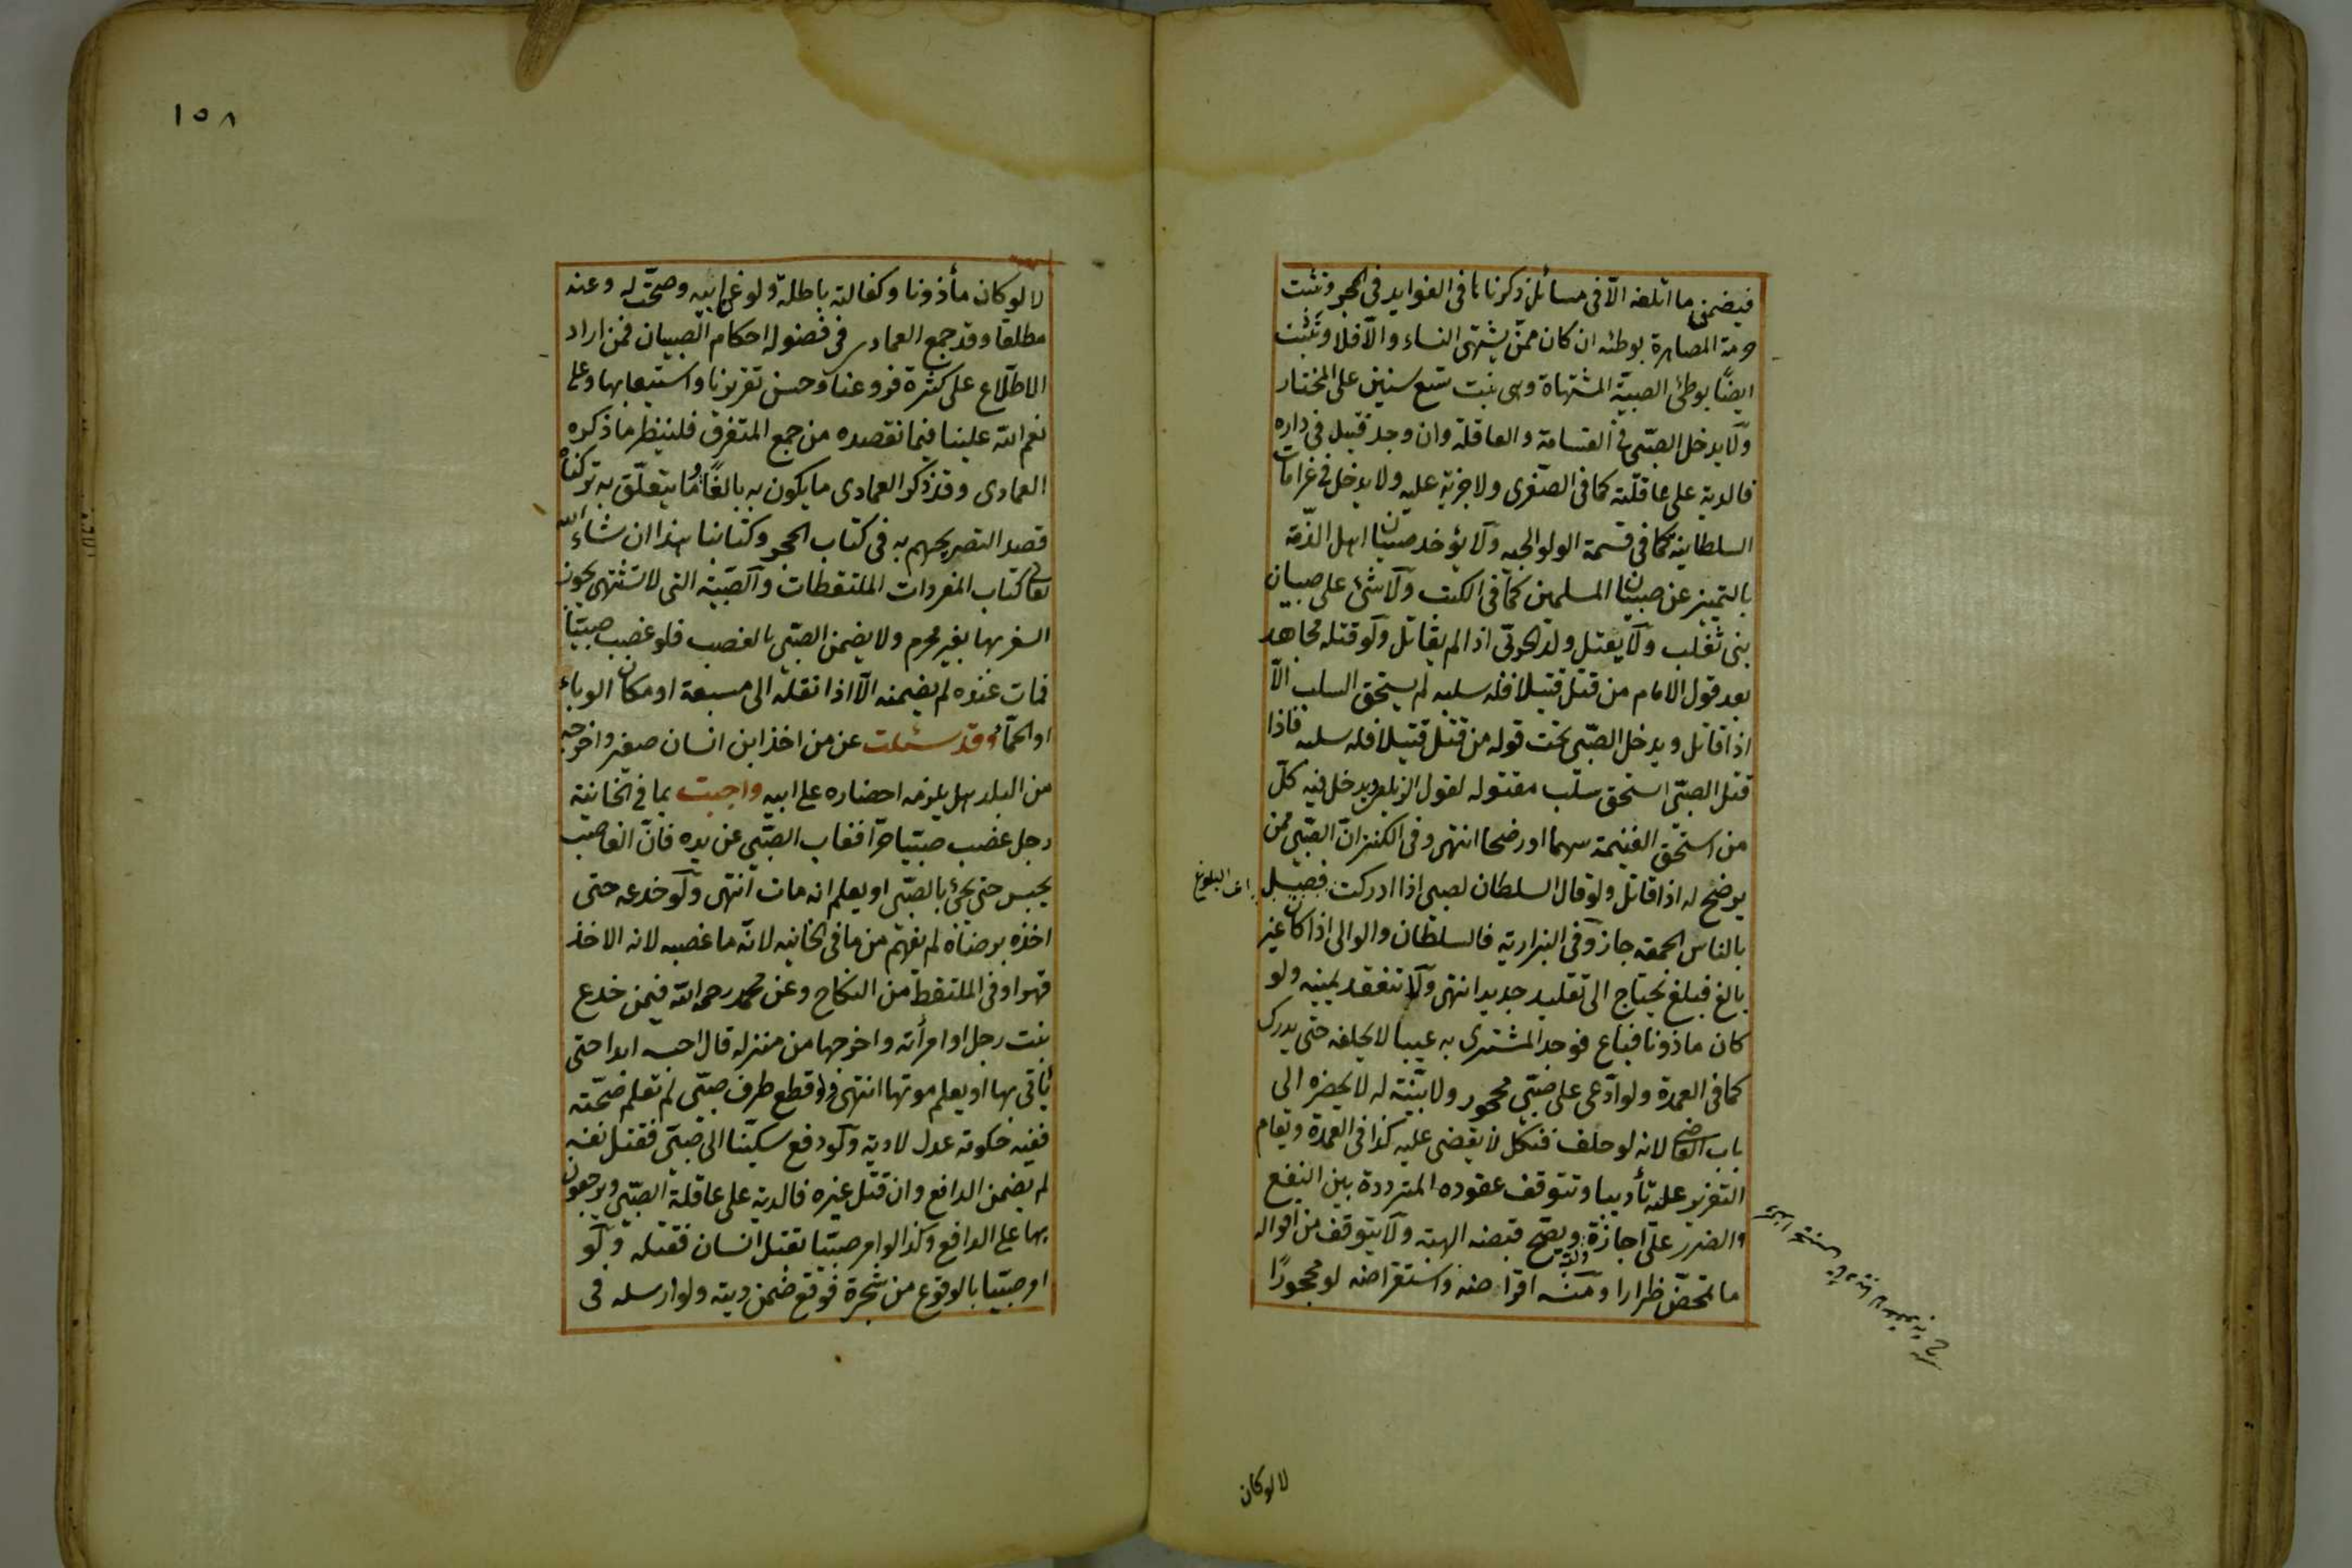 فيضمن ما اتلفه الّا فى مسائل ذكرناها فى الفوايد فى الحجر وتثبت
حرمة المصاهرة بوطئه ان كان ممّن يشتهى النساء والّا فلا وتثبت
ايضًا بوطئ الصبيّة المشتهاة وهى بنت تسع سنين على المختار
ولا يدخل الصبّى فى القسامة والعاقلة وان وجد قتيل فى داره
فالدية على عاقلته كما فى الصّغرى ولا جزية عليه ولا يدخل فى غرامات
السلطانية كما فى قسمة الولوالجيه ولا يؤخد صبيان اهل الذّمة
بالتميز عن صبيان المسلمين كما فى الكتب ولا شئ على صبيان
بنى تغلب ولا يقتل ولد الحربّى اذا لم يقاتل ولو قتله مجاهد
بعد قول الامام من قتل قتيلا فله سلبه لم يستحق السلب الّا
اذا قاتل ويدخل الصّبى تحت قوله من قتل قتيلا فله سلبه فاذا
قتل الصبّى استحق سلب مقتوله لقول الزيلعى ويدخل فيه كلّ
من استحّق الغنيمة سهما او رضخا انتهى وفى الكنز انّ الصّبى ممن
يرضخ له اذا قاتل ولو قال السلطان لصبى اذا ادركت فصّل
اى البلوغ
بالناس الجمعة جاز وفى البزازية فالسلطان والوالى اذا كان غير
بالغ فبلغ يحتاج الى تقليد جديد انتهى ولا تنعقد يمينه ولو
كان ماذونا فباع فوجد المشترى به عيبا لا يحلفه حتى يدرك
كما فى العمدة ولو ادّعى على صبّى محجور ولا بيّنة له لا يحضره الى
باب القاضى لانه لو حلف فنكل لا يقضى عليه كذا فى العمدة ويقام
التعزير عليه تأديبا وتتوقف عقوده المترددة بين النفع
والضرر على اجازة وليّه ويصّح قبضه الهبة ولا يتوقف من اقواله
ما تمحّض ضرارا ومنه اقراضه واستقراضه لو محجورًا
لا لو كان
١٥٨
لا لو كان مأذونا وكفالته باطلة ولو عن ابيه وصحّت له وعنه
مطلقا وقد جمع العمادى فى فصوله احكام الصبيان فمن اراد
الاطّلاع على كثرة فروعنا وحسن تقريرنا واستيعابها وعلى
نعم الله علينا فيما نقصده من جمع المتفرق فلينظر ما ذكره
العمادى وقد ذكر العمادى ما يكون به بالغًا وما يتعلّق به تركناه
قصد التصريحهم به فى كتاب الحجر وكتابنا هذا ان شاء الله
تعالى كتاب المفردات الملتقطات والصبّية التى لا تشتهى يجوز
السفر بها بغير محرم ولا يضمن الصبّى بالغصب فلو غصب صبيّا
فمات عنده لم يضمنه الّا اذا نقله الى مسبعة او مكان الوباء
او الحمّى وقد سئلت عن من اخذ ابن انسان صغير واخرجه
من البلد هل يلزمه احضاره على ابيه واجبت بما فى الخانية
رجل غصب صبيّا حرّا فغاب الصّبى عن يده فانّ الغاصب
يحبس حتى يجئ بالصّبى او يعلم انه مات انتهى ولو خدعه حتى
اخذه برضاه لم نفهم من ما فى الخانيه لانّه ما غصبه لانه الاخذ
قهرا وفى الملتقط من النكاح وعن محمد رحمه الله فيمن خدع
بنت رجل او امرأته واخرجها من منزله قال احبسه ابدا حتى
يأتى بها او يعلم موتها انتهى ولو قطع طرف صبّى لم تعلم صحّته
ففيه حكومة عدل لا دية ولو دفع سكّينا الى صبّى فقتل نفسه
لم يضمن الدافع وان قتل غيره فالدية على عاقلة الصبّى ويرجعون
بها على الدافع وكذا لو امر صبيّا بقتل انسان فقتله ولو
امر صبيّا بالوقوع من شجرة فوقع ضمن ديته ولو ارسله فى